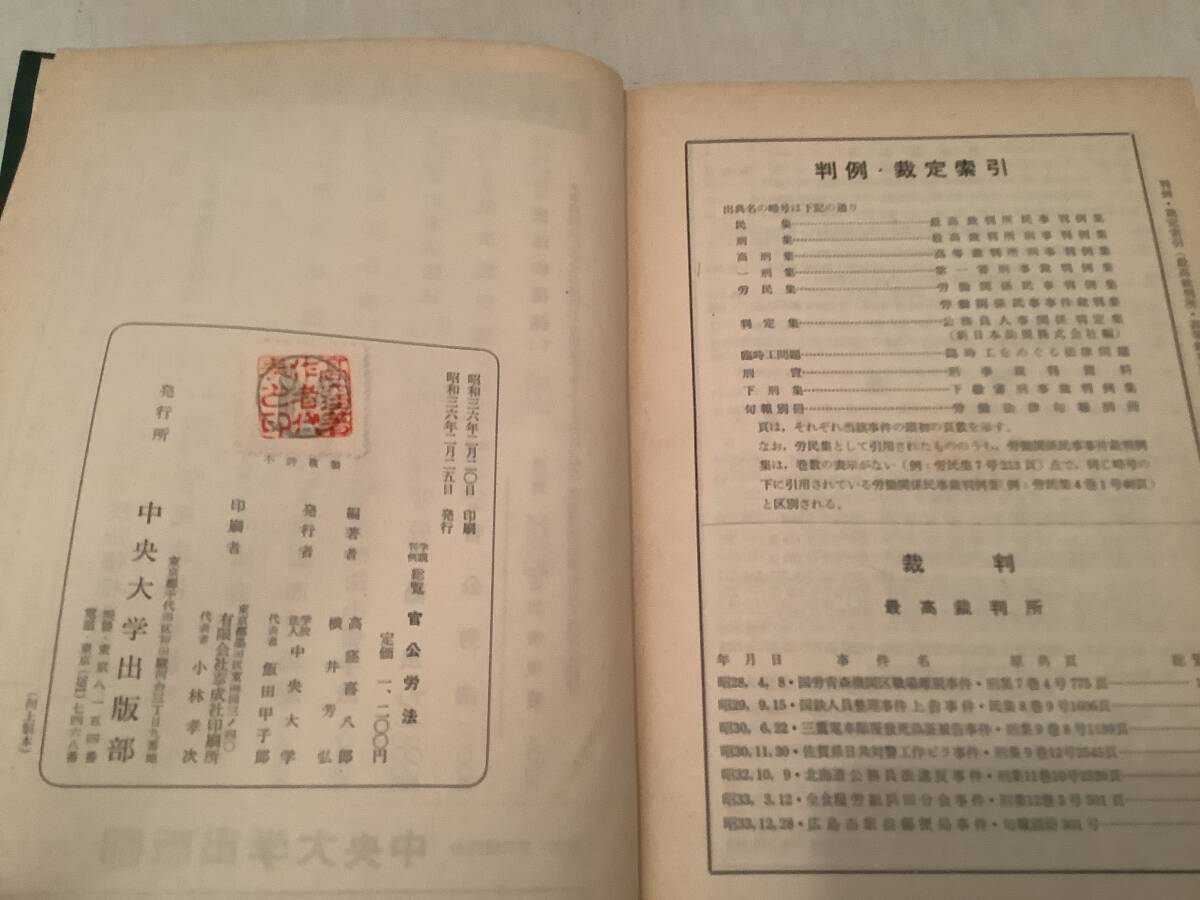 昭和三六年二月二〇日 印刷
昭和三六年二月二五日 発行
学説
判例 総覧 官公労法
定価 一、二〇〇円
編著者 高窪喜八郎
横井芳弘
発行者 学校法人 中央大学
代表者 飯田甲子郎
印刷者
有限会社志成社印刷所
代表者 小林孝次
不許複製
発行所 中央大学出版部
東京都千代田区神田駿河台三丁目九番地
判例・裁定索引
出典名の略号は下記の通り
民集 最高裁判所民事判例集
刑集 最高裁判所刑事判例集
高刑集 高等裁判所刑事判例集
一刑集 第一審刑事裁判例集
労民集 労働関係民事裁判例集
労働関係民事事件裁判集
判定集 公務員人事関係判定集
(新日本法規株式会社編)
臨時工問題 臨時工をめぐる法律問題
刑資 刑事裁判資料
下刑集 下級審刑事裁判例集
旬報別冊 労働法律旬報別冊
頁は、それぞれ当該事件の最初の頁数を示す。
なお、労民集として引用されたもののうち、労働関係民事事件裁判例
集は、巻数の表示がない(例：労民集7号213頁)点で、同じ略号の
下に引用されている労働関係民事裁判例集(例：労民集4巻1号
と区別される。
裁判
最高裁判所
年月日 事件名 原典頁
昭28, 4, 8・国労青森機関区職場離脱事件・刑集7巻4号775頁
昭29, 9,15・国鉄人員整理事件上告事件・民集8巻9号1606頁
昭30, 6,22・三鷹電車顛覆致死偽証被告事件・刑集9巻8号1189頁
昭30,11,30・佐賀県日共対警工作ビラ事件・刑集9巻12号2545頁
昭32,10, 9・北海道公務員法違反事件・刑集11巻10号
昭33, 3,12・刑集12巻3号501頁
昭33,12,28・広島市駅前郵便局事件・旬報別冊